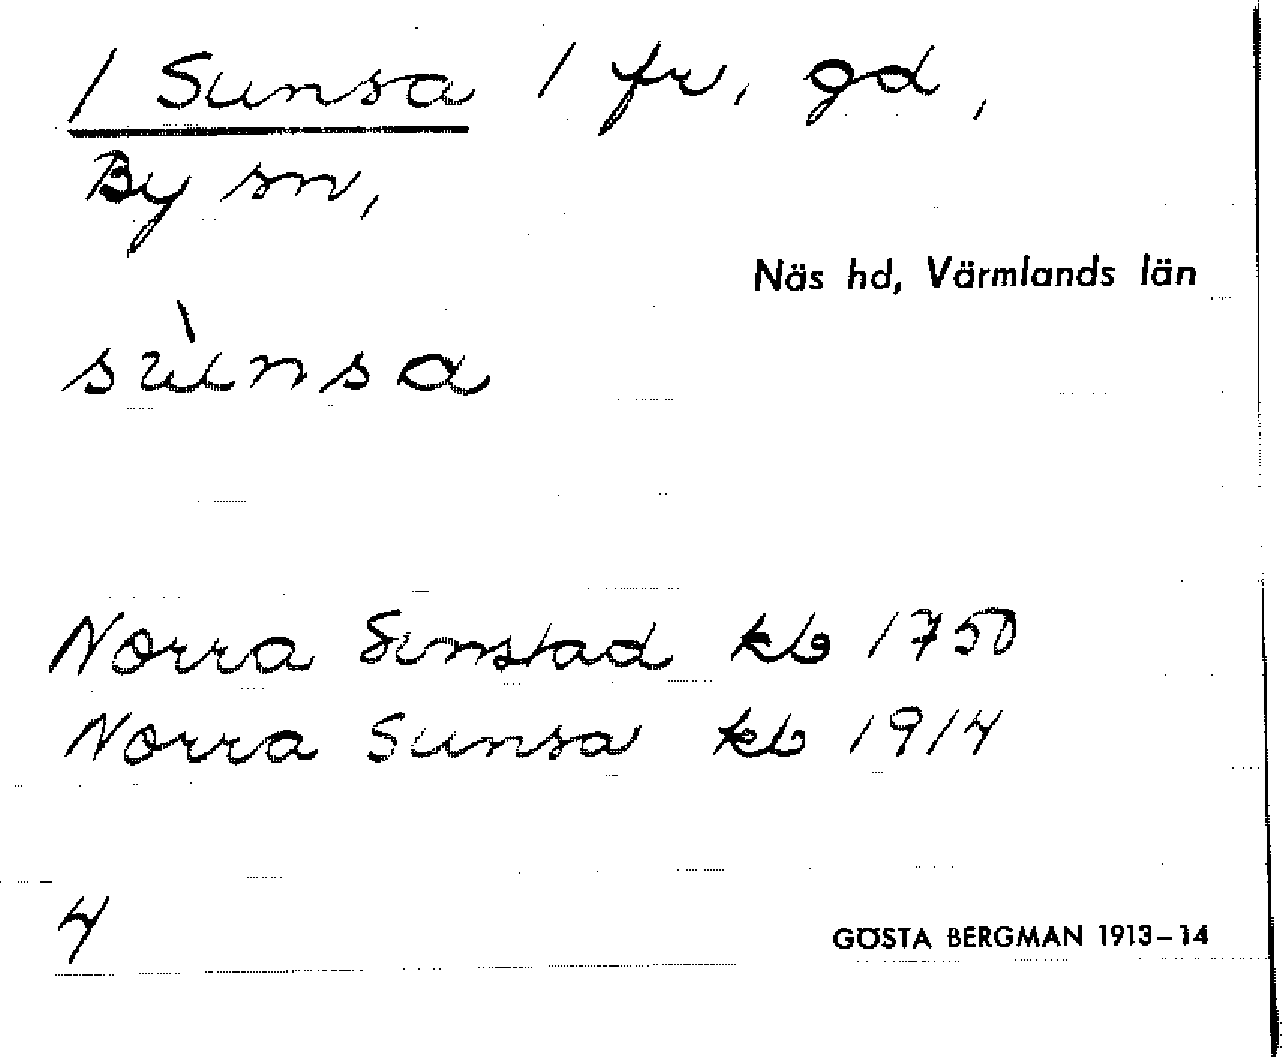 / Sunsa / fr, gd,
By sn,
Näs hd, Värmlands län
sùnsa
Norra Sunstad kb 1750
Norra Sunsa kb 1914
4
GÖSTA BERGMAN 1913-14